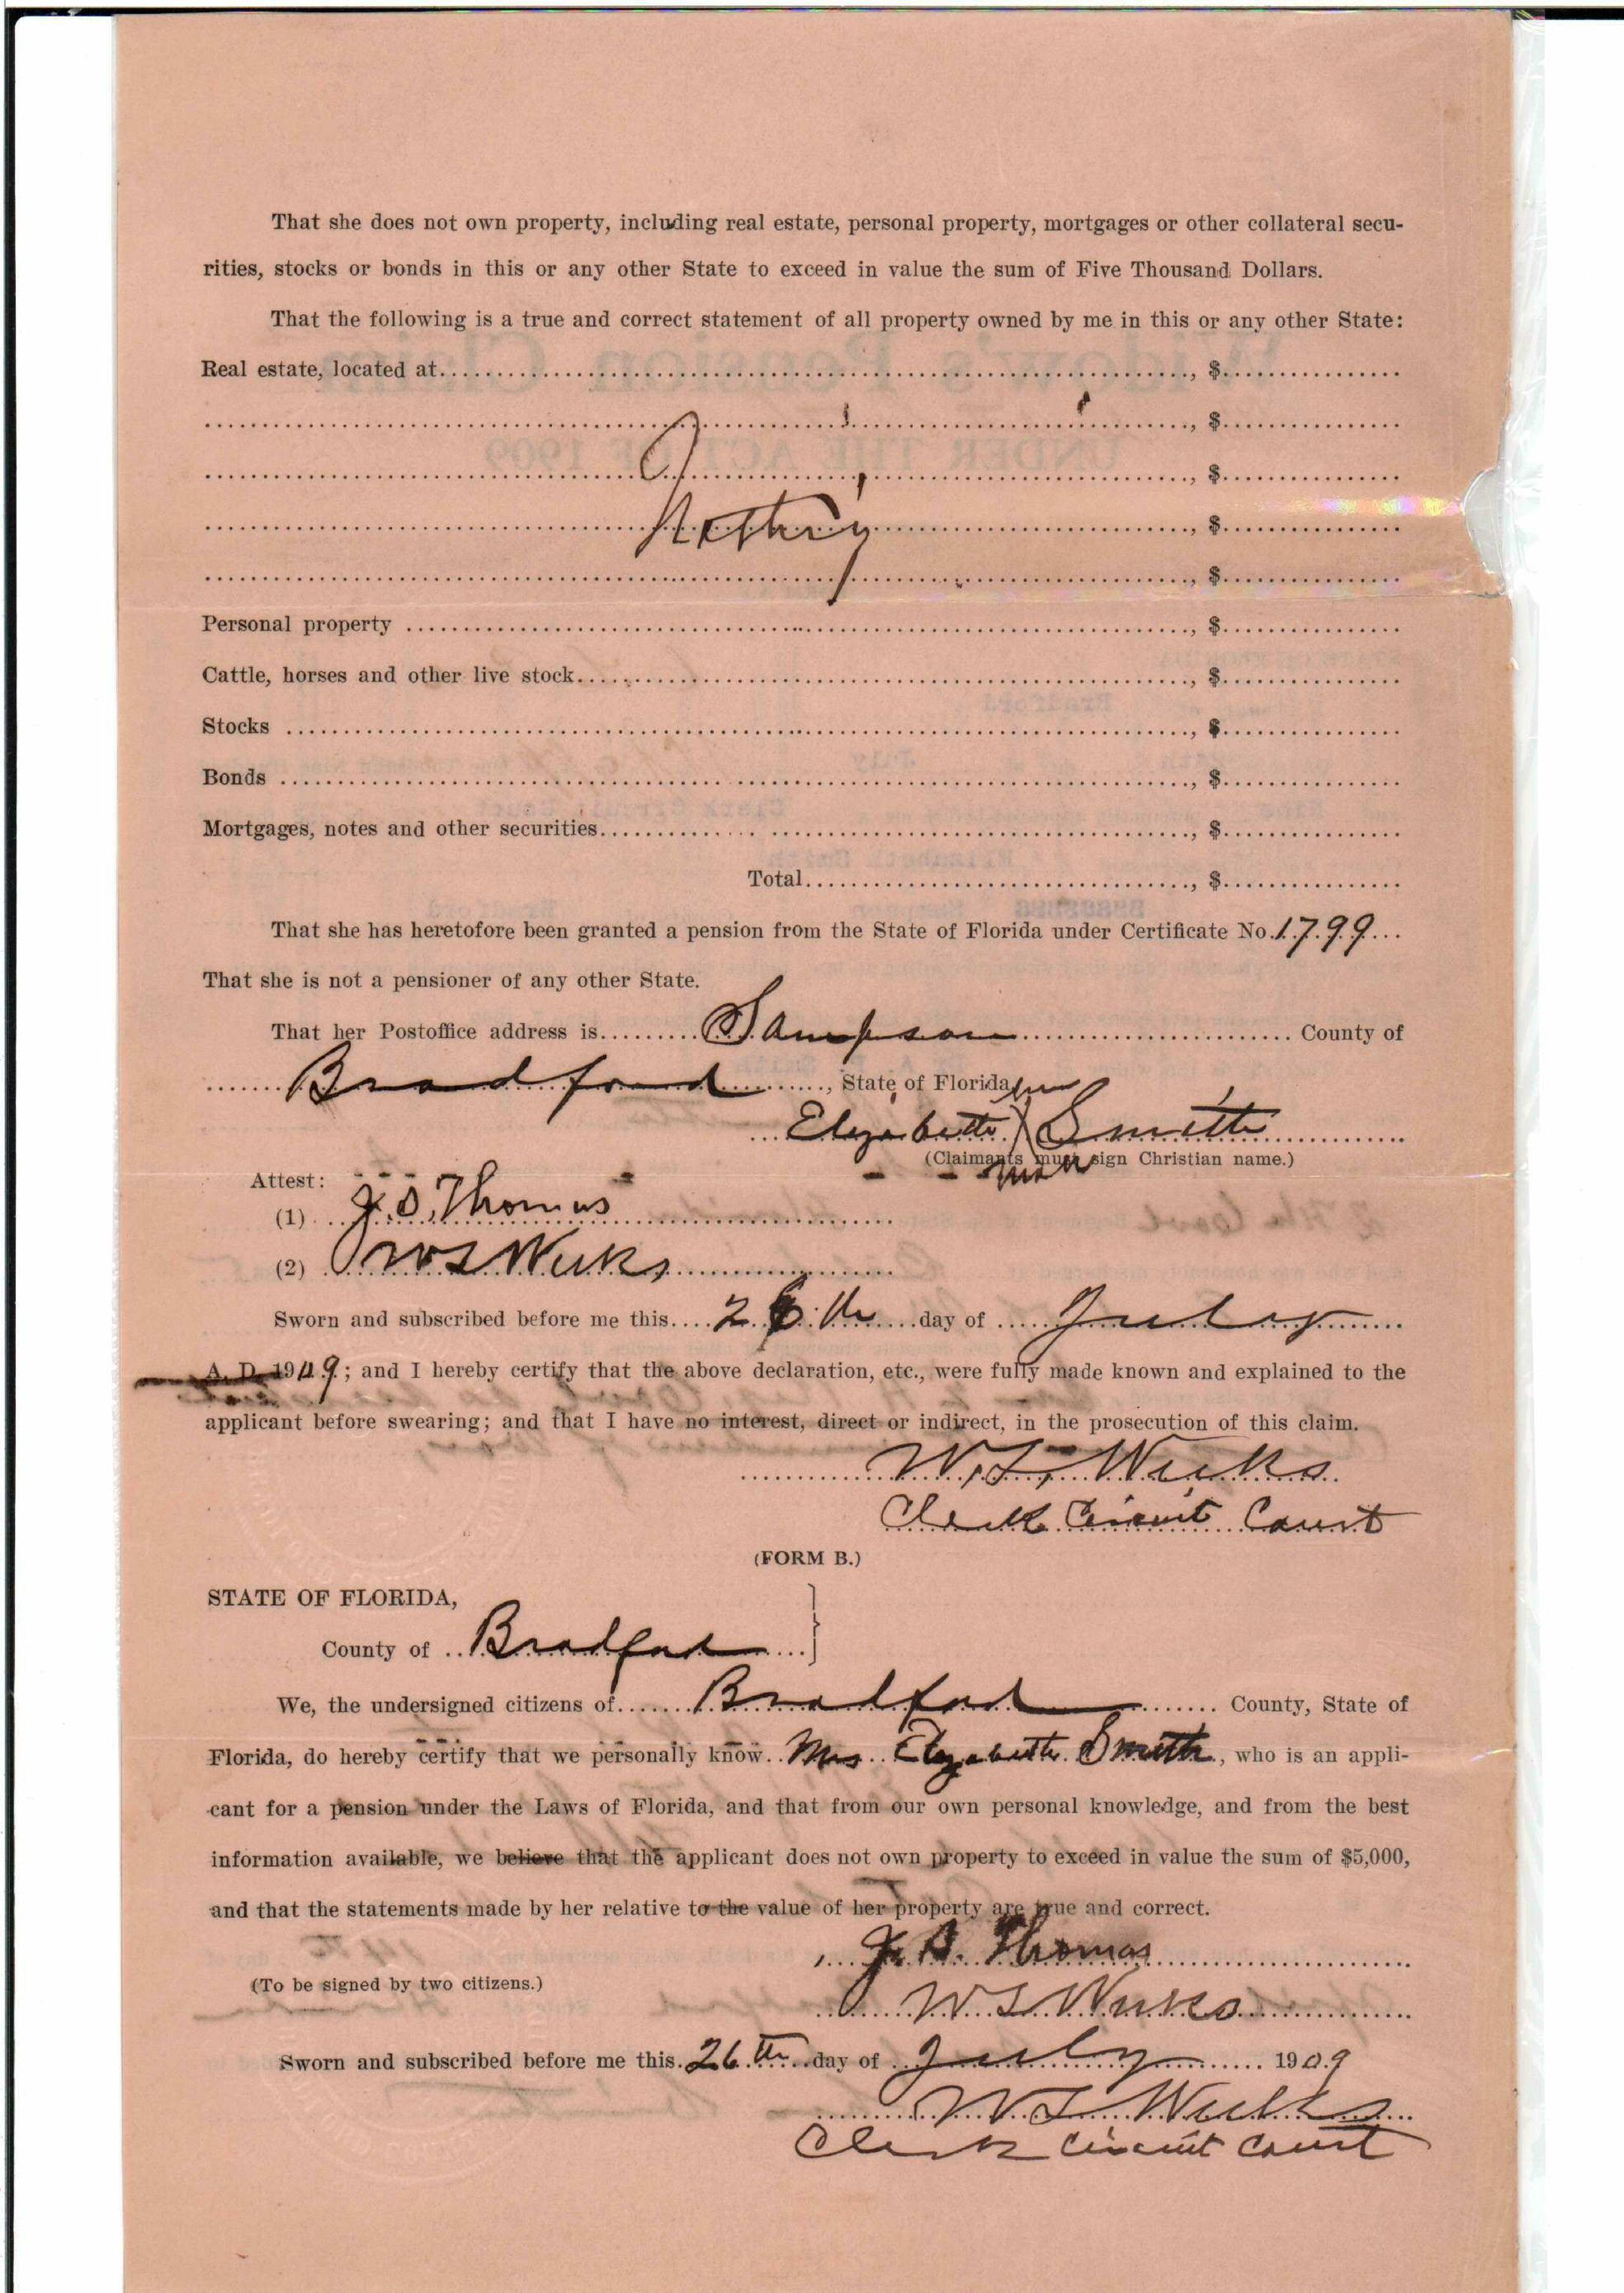 That she does not own property, including real estate, personal property, mortgages or other collateral secu-
rities, stocks or bonds in this or any other State to exceed in value the sum of Five Thousand Dollars.
That the following is a true and correct statement of all property owned by me in this or any other State:
Real estate, located at........................, $................
........................, $................
........................, $................
Nothing........................, $................
........................, $................
Personal property ........................, $................
Cattle, horses and other live stock........................, $................
Stocks ........................, $................
Bonds ........................, $................
Mortgages, notes and other securities........................, $................
Total........................, $................
That she has heretofore been granted a pension from the State of Florida under Certificate No. 1799...
That she is not a pensioner of any other State.
That her Postoffice address is......... Sampson ........................ County of
....... Bradford ........, State of Florida
her
... Elizabeth X Smith ............
(Claimants must sign Christian name.)
mark
Attest:
(1) J. D. Thomas ............
(2) W L Weeks ............
Sworn and subscribed before me this.... 26 th ......day of ..... July ......
A. D. 1909; and I hereby certify that the above declaration, etc., were fully made known and explained to the
applicant before swearing; and that I have no interest, direct or indirect, in the prosecution of this claim.
............ W. L. Weeks
Clerk Circuit Court
(FORM B.)
STATE OF FLORIDA,
County of .. Bradford ....}
We, the undersigned citizens of...... Bradford ........ County, State of
Florida, do hereby certify that we personally know.. Mrs. Elizabeth Smith, who is an appli-
cant for a pension under the Laws of Florida, and that from our own personal knowledge, and from the best
information available, we believe that the applicant does not own property to exceed in value the sum of $5,000,
and that the statements made by her relative to the value of her property are true and correct.
.... J. D. Thomas ............
(To be signed by two citizens.)
........ W L Weeks ............
Sworn and subscribed before me this. 26 th ...day of .. July ...... 1909
........ W L Weeks ...
Clerk Circuit Court